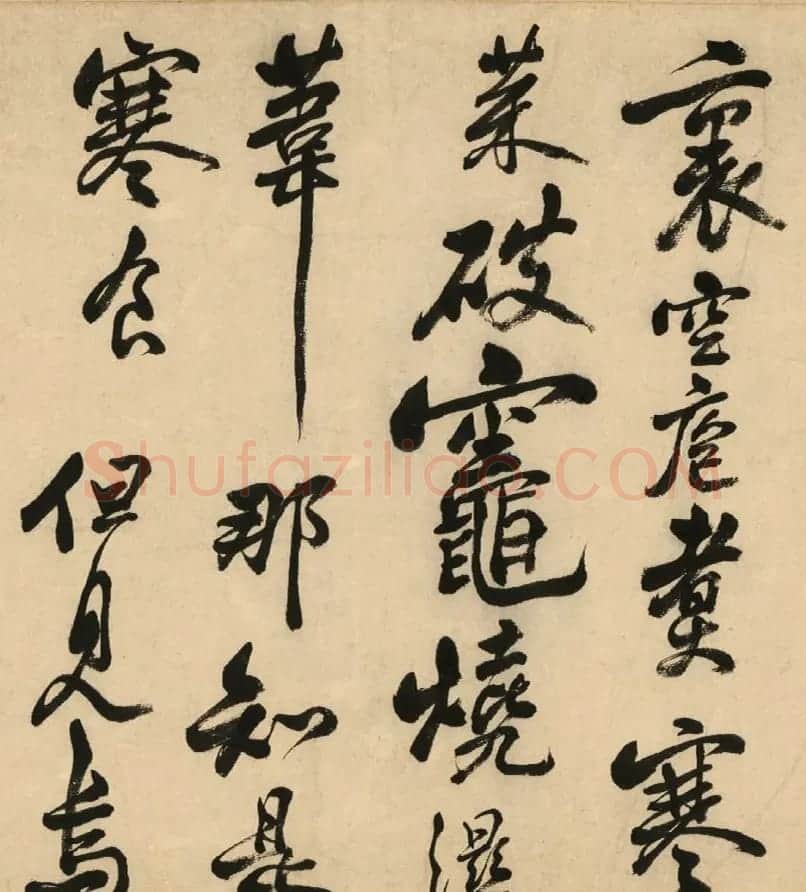 裏空庖煮寒
菜破竈燒濕
葦那知是
寒食但見烏
Shufaziliao.COM